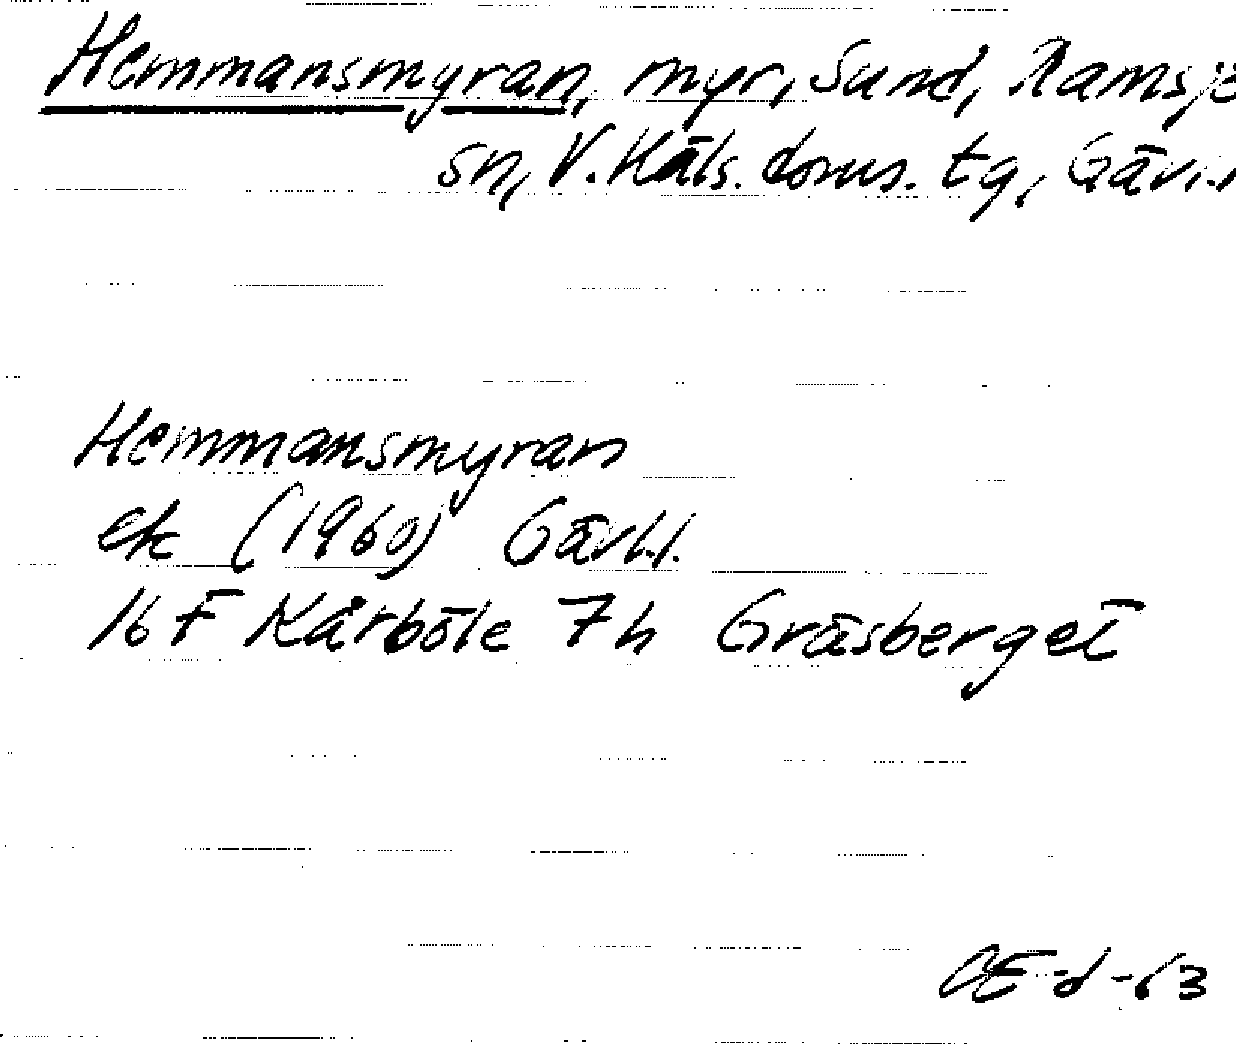 Hemmansmyran, myr, Sund, Ramsjö
sn, V. Häls. doms. tg, Gävl.
Hemmansmyran
ek (1960) Gävl.l.
16 F Kårböle 7h Gräsberget
OE-d-63